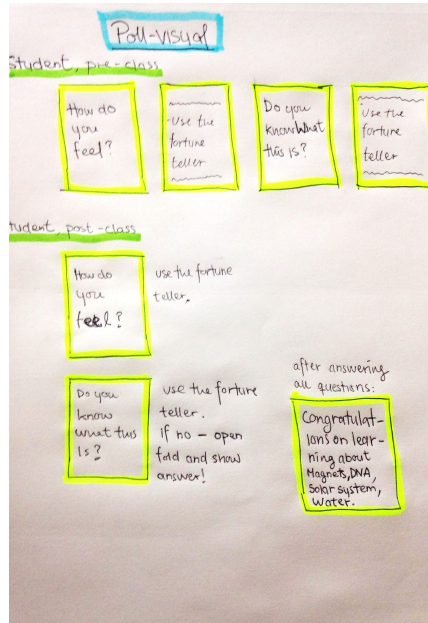 Poll-visual
Student, pre-class
How do
you
feel?
Use the
fortune
teller
Do you
know What
this is?
Use the
fortune
teller
tudent, post-class
How do
you
feel?
use the fortune
teller.
Do you
know
what this
is?
use the forture
teller.
if no – open
fold and show
answer!
after answering
all questions:
Congratulat-
ions on lear-
ning about
Magnets, DNA,
Solar system,
Water.